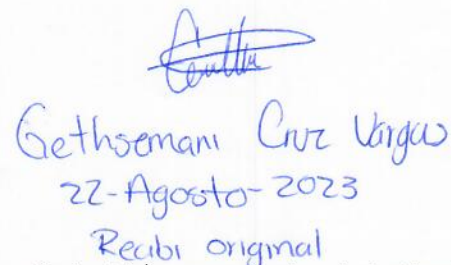 Gethsemani Cruz Vargas
22-Agosto-2023
Recibi original